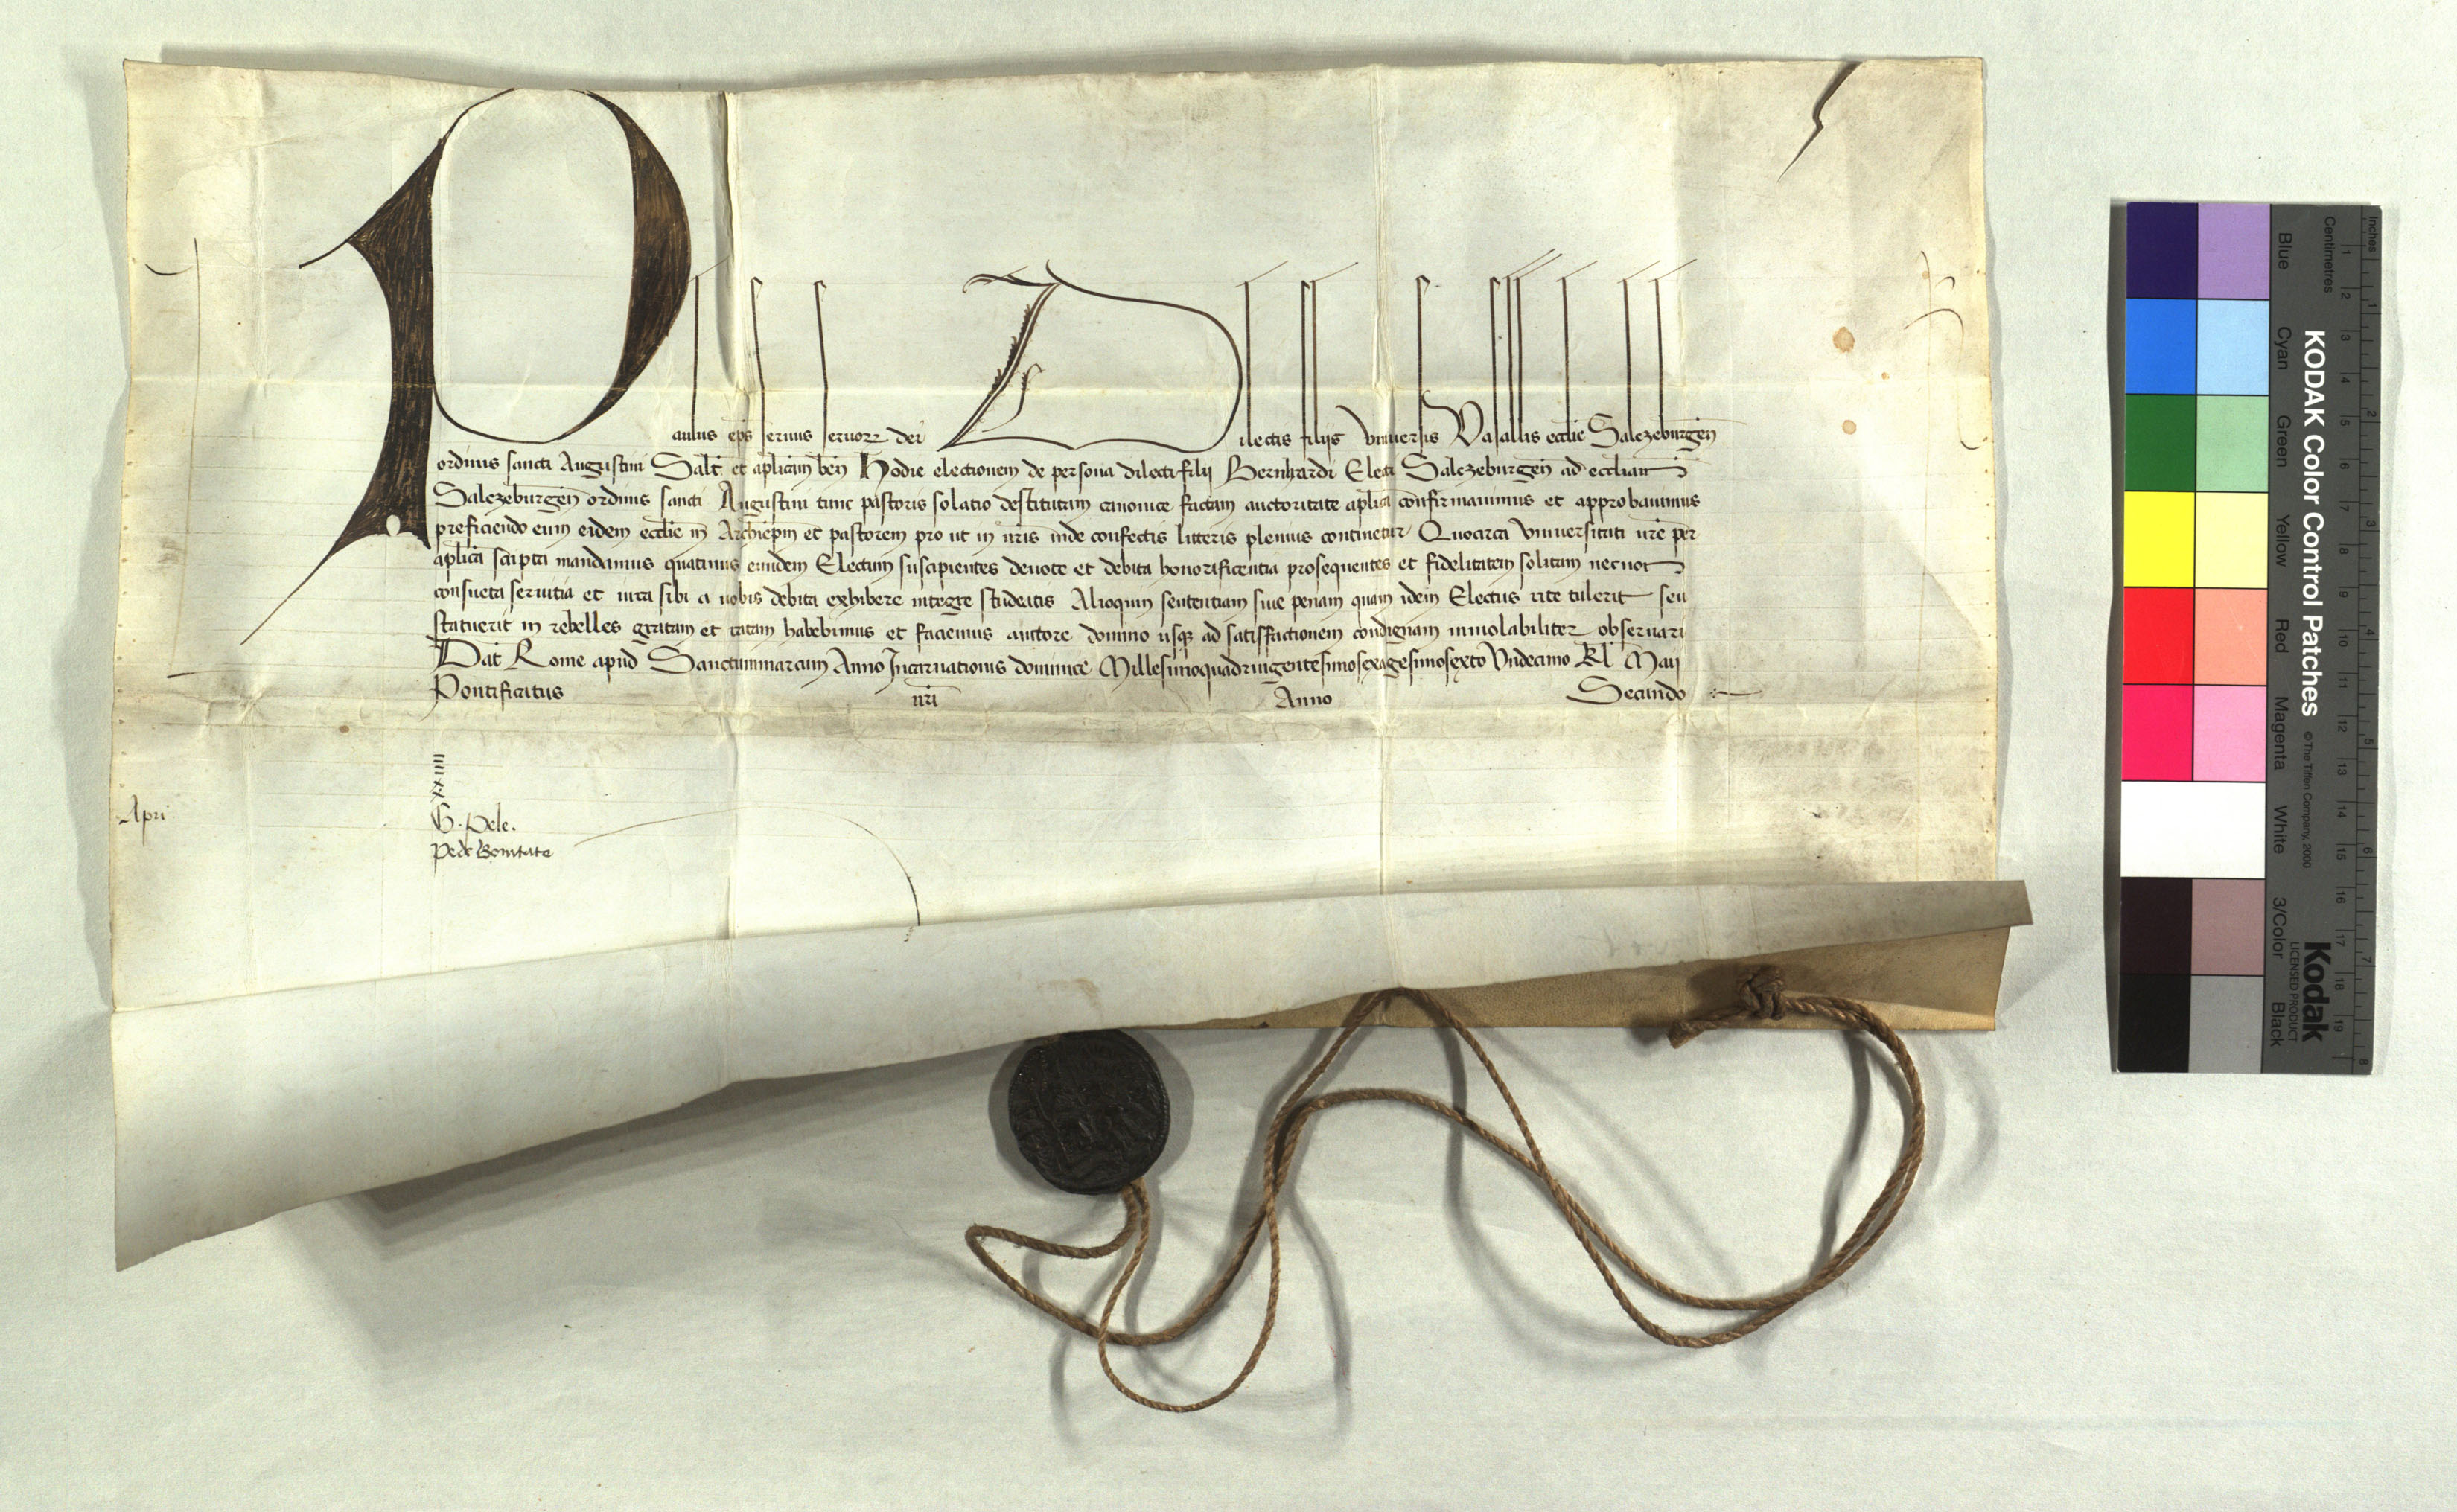 Paulus eps seruus seruor dei Dilectis filijs Vniuersis Vasallis ecclie Salczeburgen
ordinis sancti Augustini Salt et aplicam ben Hodie electionem de persona dilecti filij Bernhardi Electi Salczeburgen ad eccliam
Salczeburgen ordinis sancti Augustini tunc pastoris solatio destitutam canonice factam auctoritate aplica confirmauimus et approbauimus
preficiendo eum eidem ecclie in Archiepm et pastorem pro ut in nris inde confectis litteris plenius continetur Quocirca Vniuersitati vre per
aplica scripta mandamus quatinus eundem Electum suscipientes deuote et debita honorificentia prosequentes et fidelitatem solitam necnon
consueta seruitia et iura sibi a uobis debita exhibere integre studeatis Alioquin sententiam siue penam quam idem Electus rite tulerit seu
statuerit in rebelles gratam et ratam habebimus et faciemus auctore domino usqz ad satisfactionem condignam inuiolabiliter obseruari
Dat Rome apud Sanctummarcum Anno Incarnationis dominice Millesimoquadringentesimosexagesimosexto Vndecimo Kl Maij
Pontificatus nri Anno Secundo
xxiiii
Apri
G. pele.
pe de Bonitate
KODAK Color Control Patches
© The Tiffen Company, 2000
Kodak
LICENSED PRODUCT
Inches
Centimetres
1 2 3 4 5 6 7 8 9 10 11 12 13 14 15 16 17 18 19
1 2 3 4 5 6 7 8
Blue Cyan Green Yellow Red Magenta White 3/Color Black